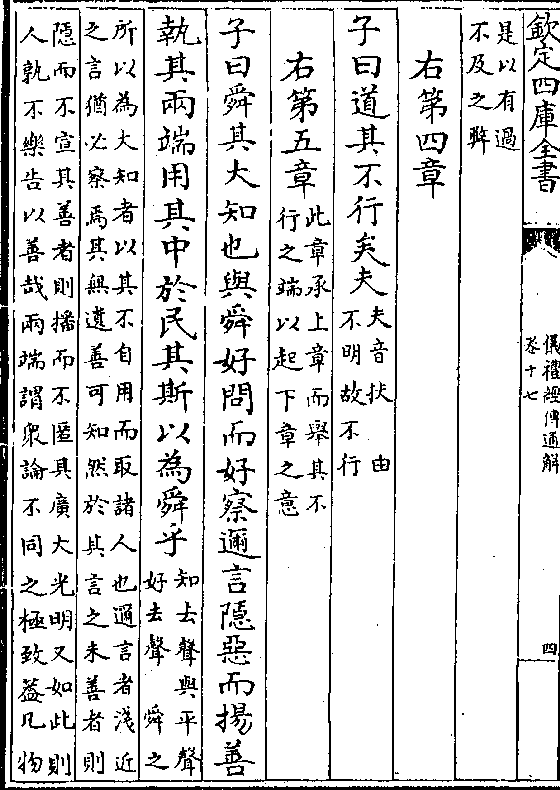 欽定四庫全書
儀禮經傳通解
卷十七
四
是以有過
不及之弊
右第四章
子曰道其不行矣夫
夫音扶　由
不明故不行
右第五章
此章承上章而舉其不
行之端以起下章之意
子曰舜其大知也與舜好問而好察邇言隱惡而揚善
執其兩端用其中於民其斯以為舜乎
知去聲與平聲
好去聲　舜之
所以為大知者以其不自用而取諸人也邇言者淺近
之言猶必察焉其無遺善可知然於其言之未善者則
隱而不宣其善者則播而不匿其廣大光明又如此則
人孰不樂告以善哉兩端謂衆論不同之極致蓋凡物